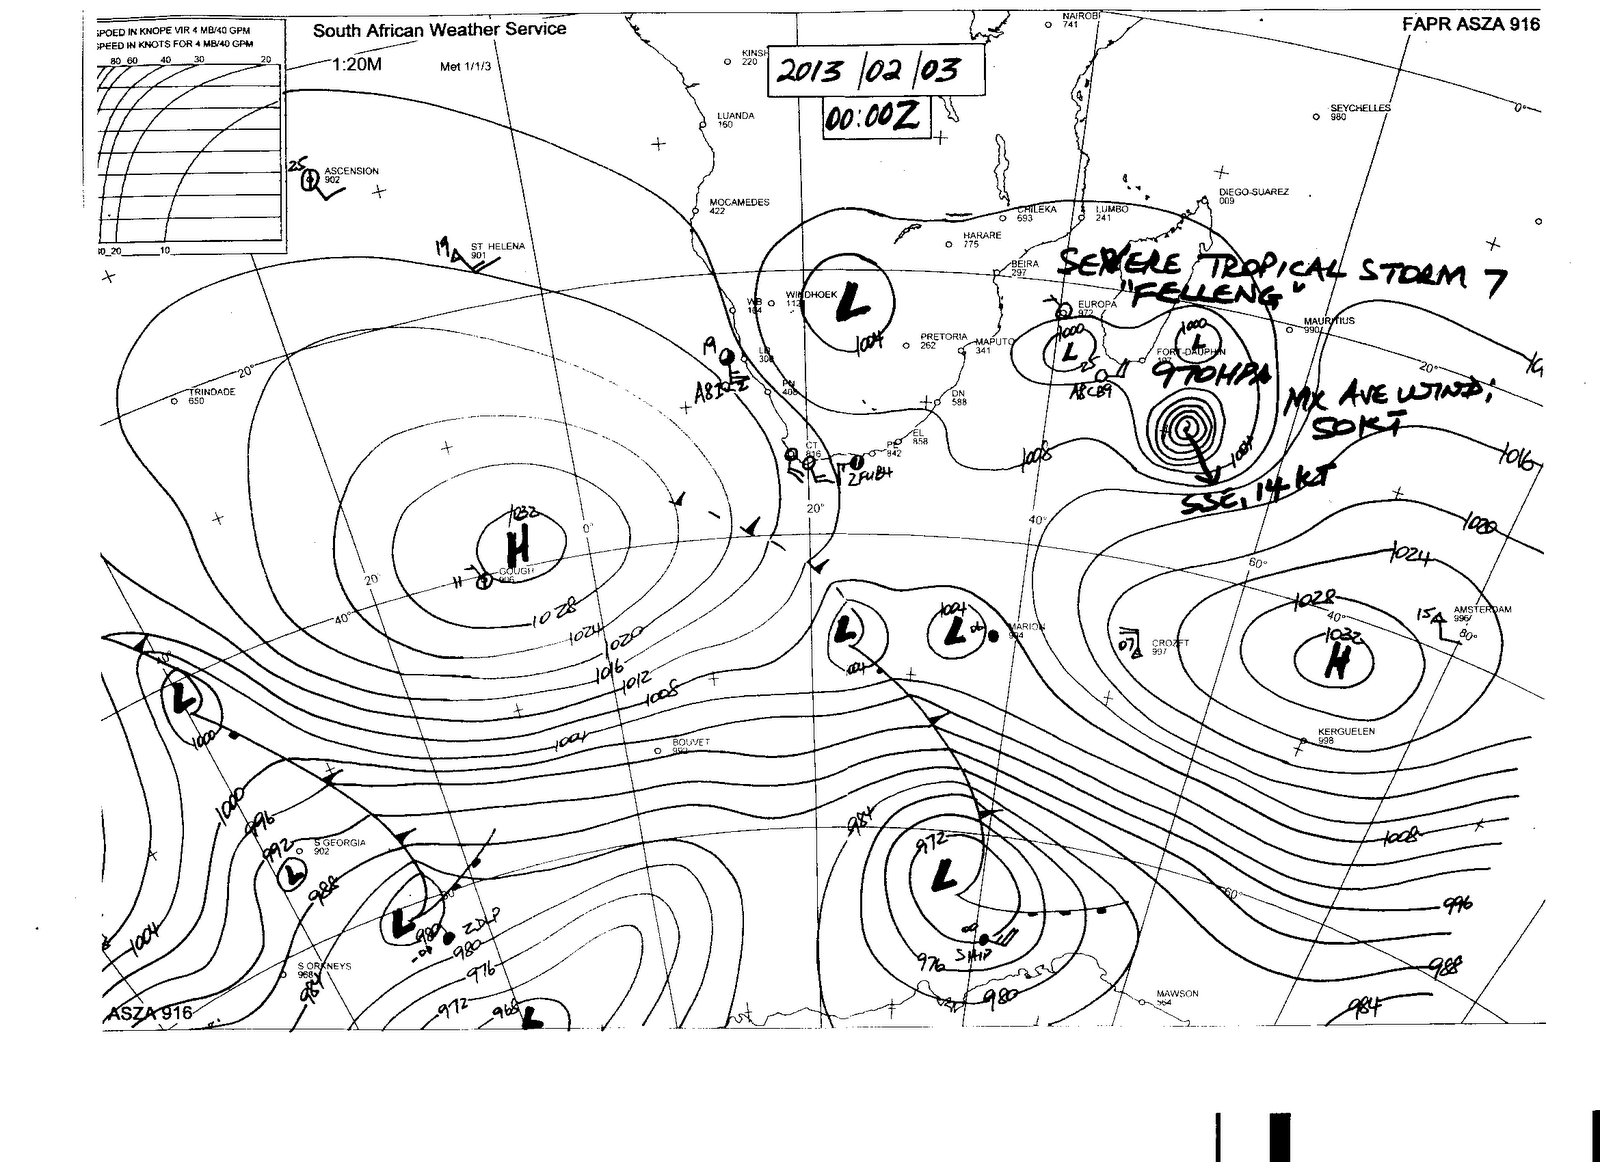 SPOED IN KNOPE VIR 4 MB/40 GPM
SPEED IN KNOTS FOR 4 MB/40 GPM
80 60 40 30 20
20 10
South African Weather Service
1:20M
Met 1/1/3
2013/02/03
00:00Z
FAPR ASZA 916
NAIROBI
741
KINSH
220
LUANDA
160
SEYCHELLES
980
0°
25
ASCENSION
902
MOCAMEDES
422
DIEGO-SUAREZ
009
CHILEKA
693
LUMBO
241
19
ST HELENA
901
HARARE
775
BEIRA
297
SEVERE TROPICAL STORM 7
"FELLENG"
WB
104
WINDHOEK
112
L
1004
EUROPA
972
1000
L
1000
L
MAURITIUS
990
PRETORIA
262
MAPUTO
341
FORT-DAUPHIN
197
970HPA
20°
20°
TRINDADE
650
19
LD
300
25
A8CB9
MX AVE WIND:
50KT
PN
408
DN
588
EL
858
PE
842
CT
816
ZFUB4
1008
1004
1016
SSE, 14 KT
20°
40°
0°
1032
H
GOUGH
906
11
20°
40°
1020
1024
60°
1028
40°
1032
H
15
AMSTERDAM
996
80°
1028
1024
1020
1016
1012
1008
1004
L
1004
L
06
MARION
994
004
07
CROZET
997
40°
L
1000
BOUVET
990
KERGUELEN
998
1000
996
992
S GEORGIA
902
L
988
984
972
L
1008
60°
996
L
980
ZDLP
980
976
972
968
L
1004
S ORKNEYS
968
984
00
SHIP
976
980
988
984
MAWSON
564
ASZA 916